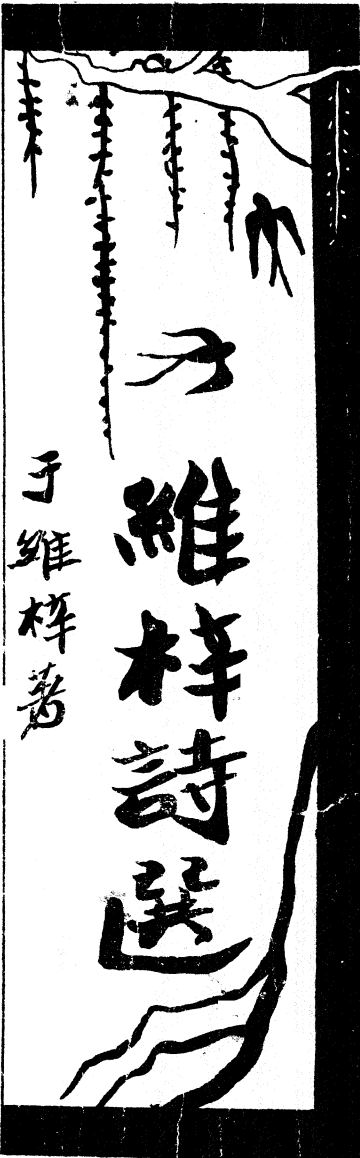 維梓詩選
于維梓著